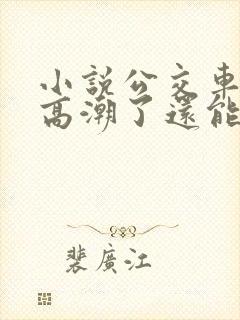 小説公交車
高潮了還能
裴廣江